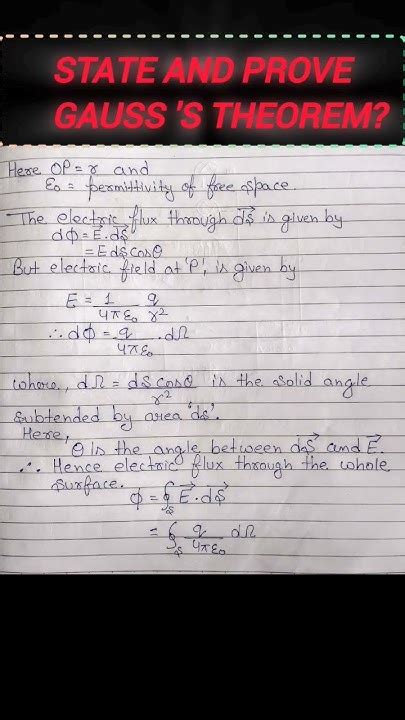 STATE AND PROVE
GAUSS 'S THEOREM?
Here OP = r and
ε₀ = permittivity of free space.
The electric flux through d𝑆⃗ is given by
dΦ = E⃗.dS⃗
= E ds cosθ
But electric field at 'P', is given by
E = 1/4πε₀ q/r²
∴ dΦ = q/4πε₀ . dΩ
where, dΩ = ds cosθ/r² is the solid angle
subtended by area 'ds'.
Here,
θ is the angle between dS⃗ and E⃗.
∴ Hence electric flux through the whole
surface.
Φ = ∮ₛ E⃗.dS⃗
= ∮ₛ q/4πε₀ dΩ